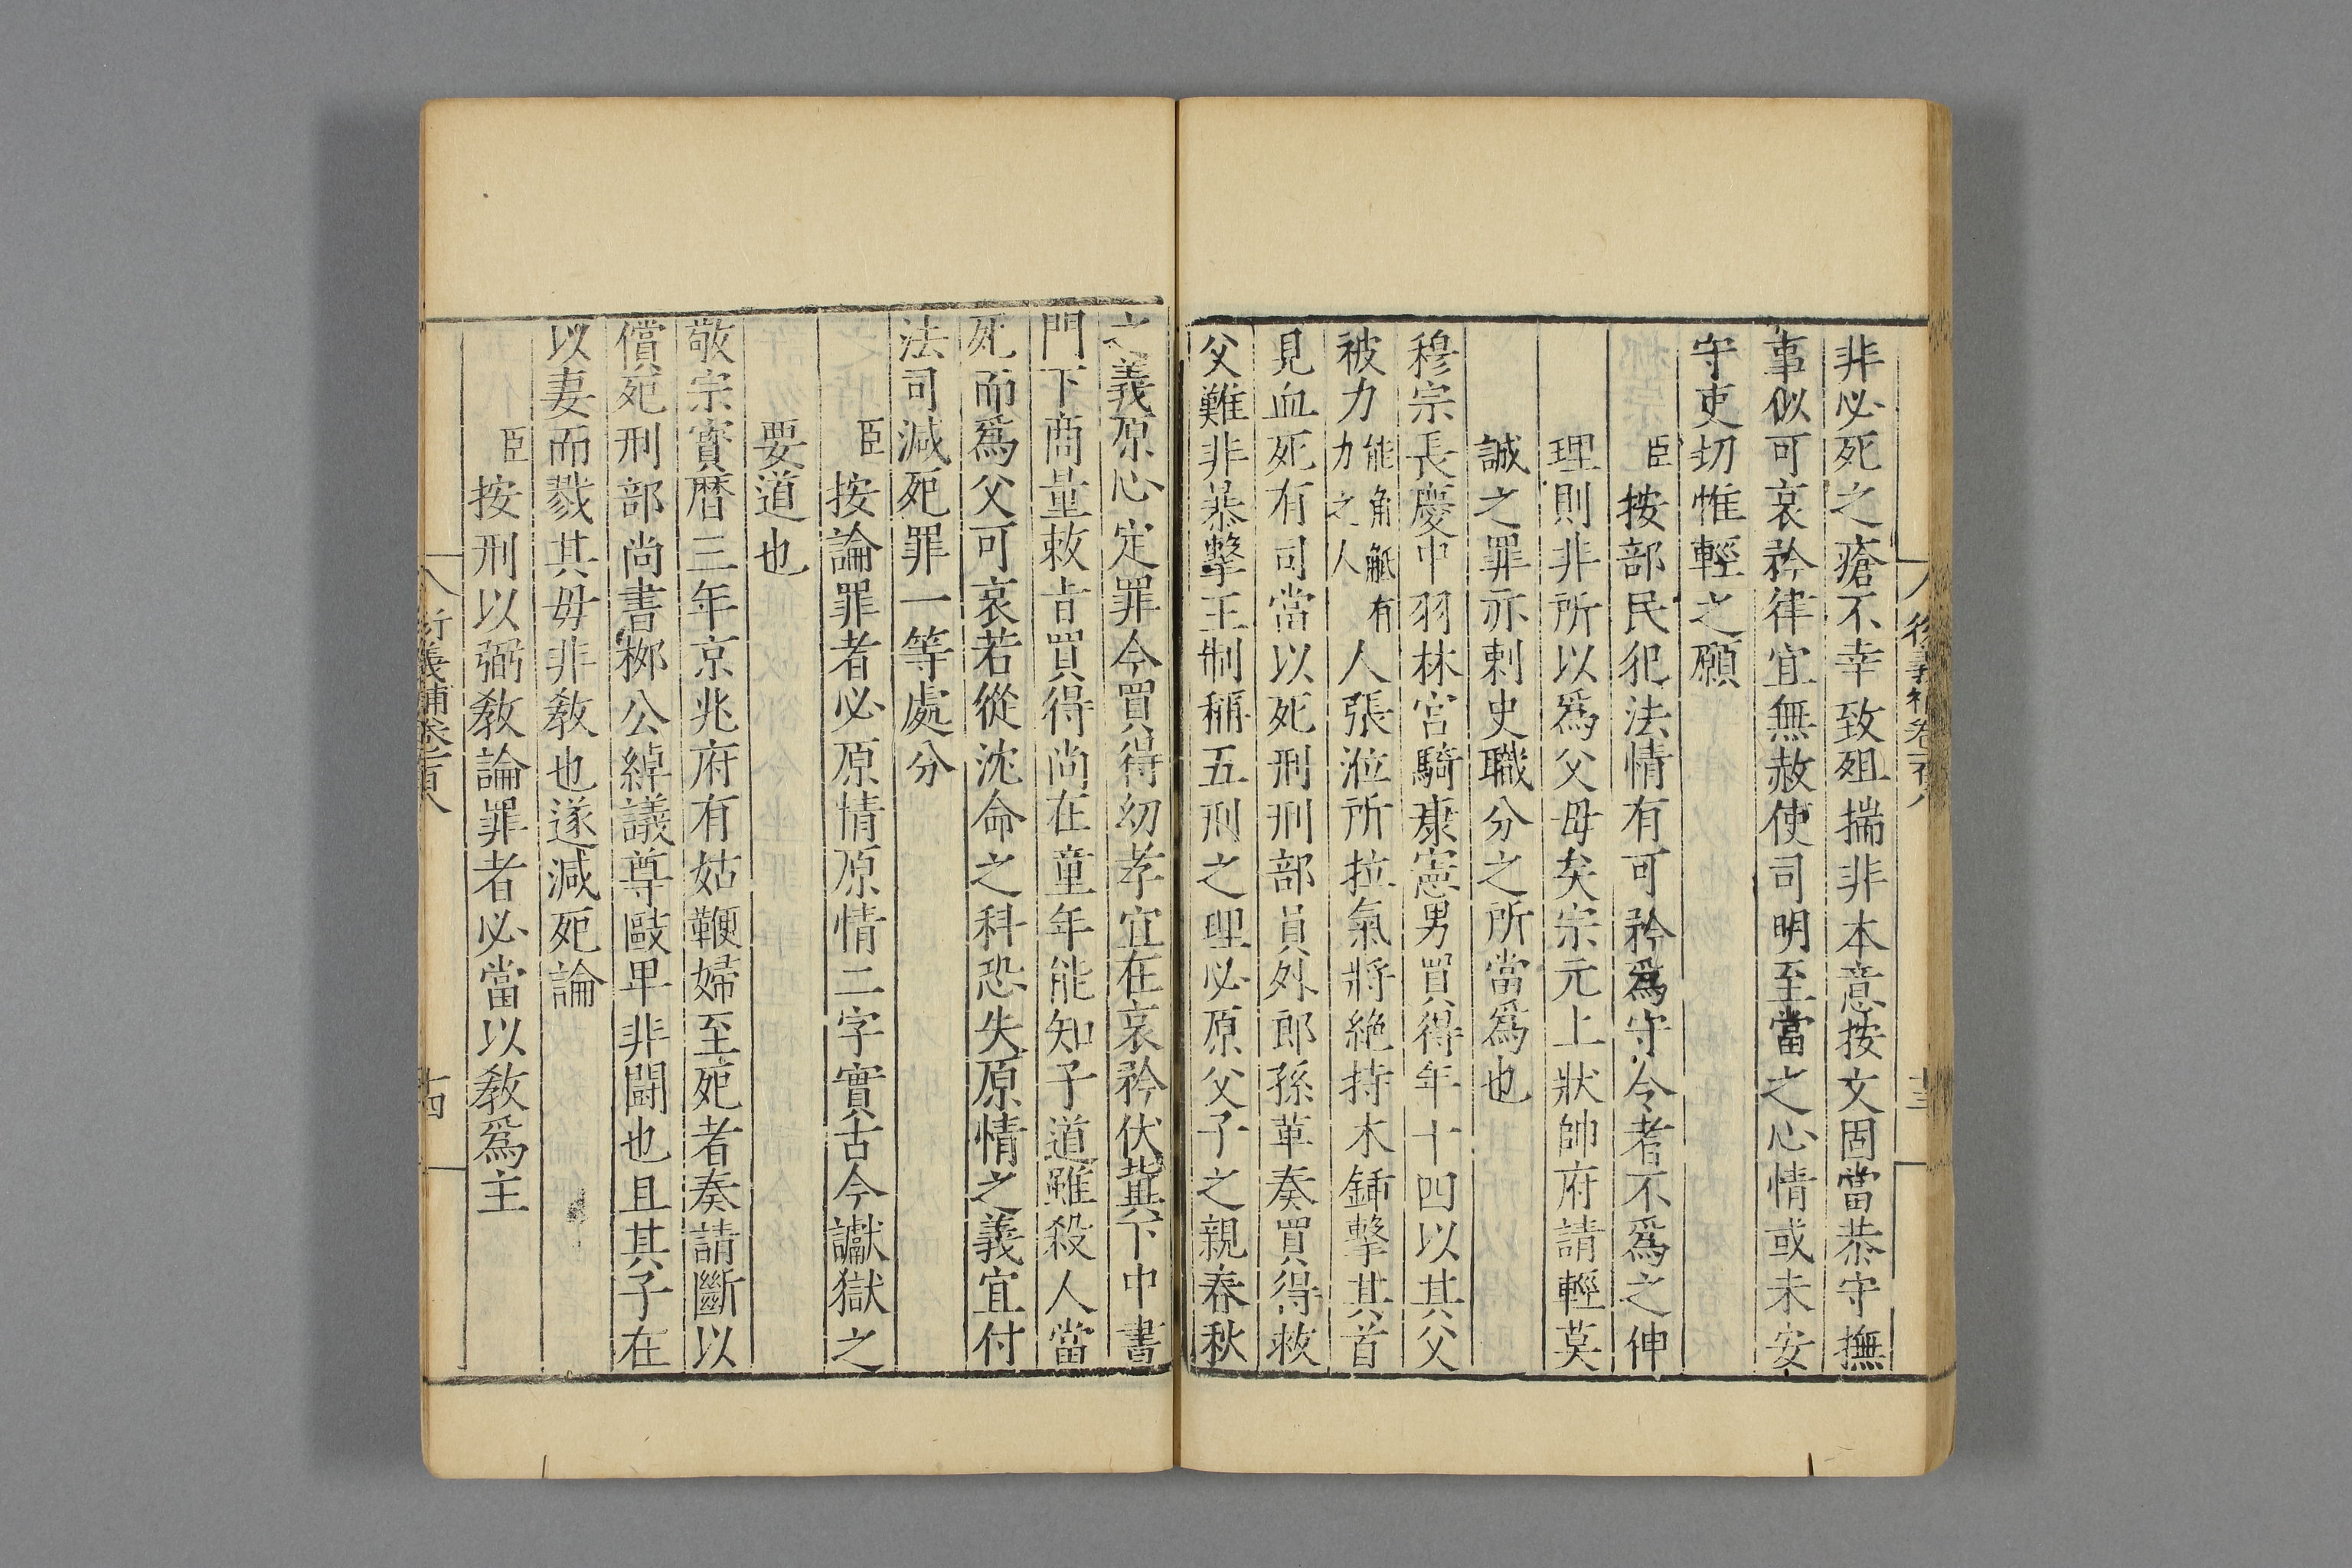 非必死之瘡不幸致殂揣非本意按文固當恭守撫
事似可哀矜律宜無赦使司明至當之心情或未安
守吏切惟輕之願
臣按部民犯法情有可矜爲守令者不爲之伸
理則非所以爲父母矣宗元上狀帥府請輕莫
誠之罪亦刺史職分之所當爲也
穆宗長慶中羽林官騎康憲男買得年十四以其父
被力能角觝有力之人人張涖所拉氣將絶持木鍤擊其首
見血死有司當以死刑刑部員外郎孫革奏買得救
父難非暴擊王制稱五刑之理必原父子之親春秋
之義原心定罪今買得幼孝宜在哀矜伏冀下中書
門下商量敕旨買得尚在童年能知子道雖殺人當
死而爲父可哀若從沈命之科恐失原情之義宜付
法司減死罪一等處分
臣按論罪者必原情原情二字實古今讞獄之
要道也
敬宗寶曆三年京兆府有姑鞭婦至死者奏請斷以
償死刑部尚書栁公綽議尊毆卑非鬪也且其子在
以妻而戮其母非敎也遂減死論
臣按刑以弼敎論罪者必當以敎爲主
衍義補卷一百八
十四